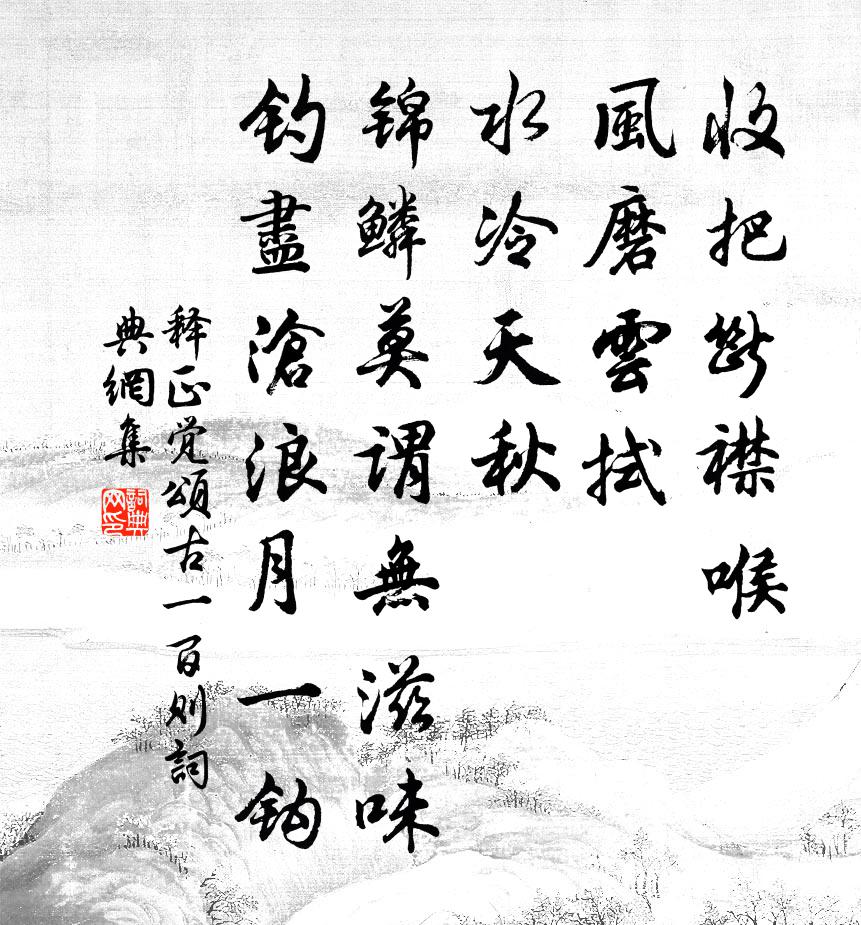 收把断襟喉
風磨雲拭
水冷天秋
錦鱗莫謂無滋味
釣盡滄浪月一鈎
释正觉頌古一百则詞
典網集
詞典
网印